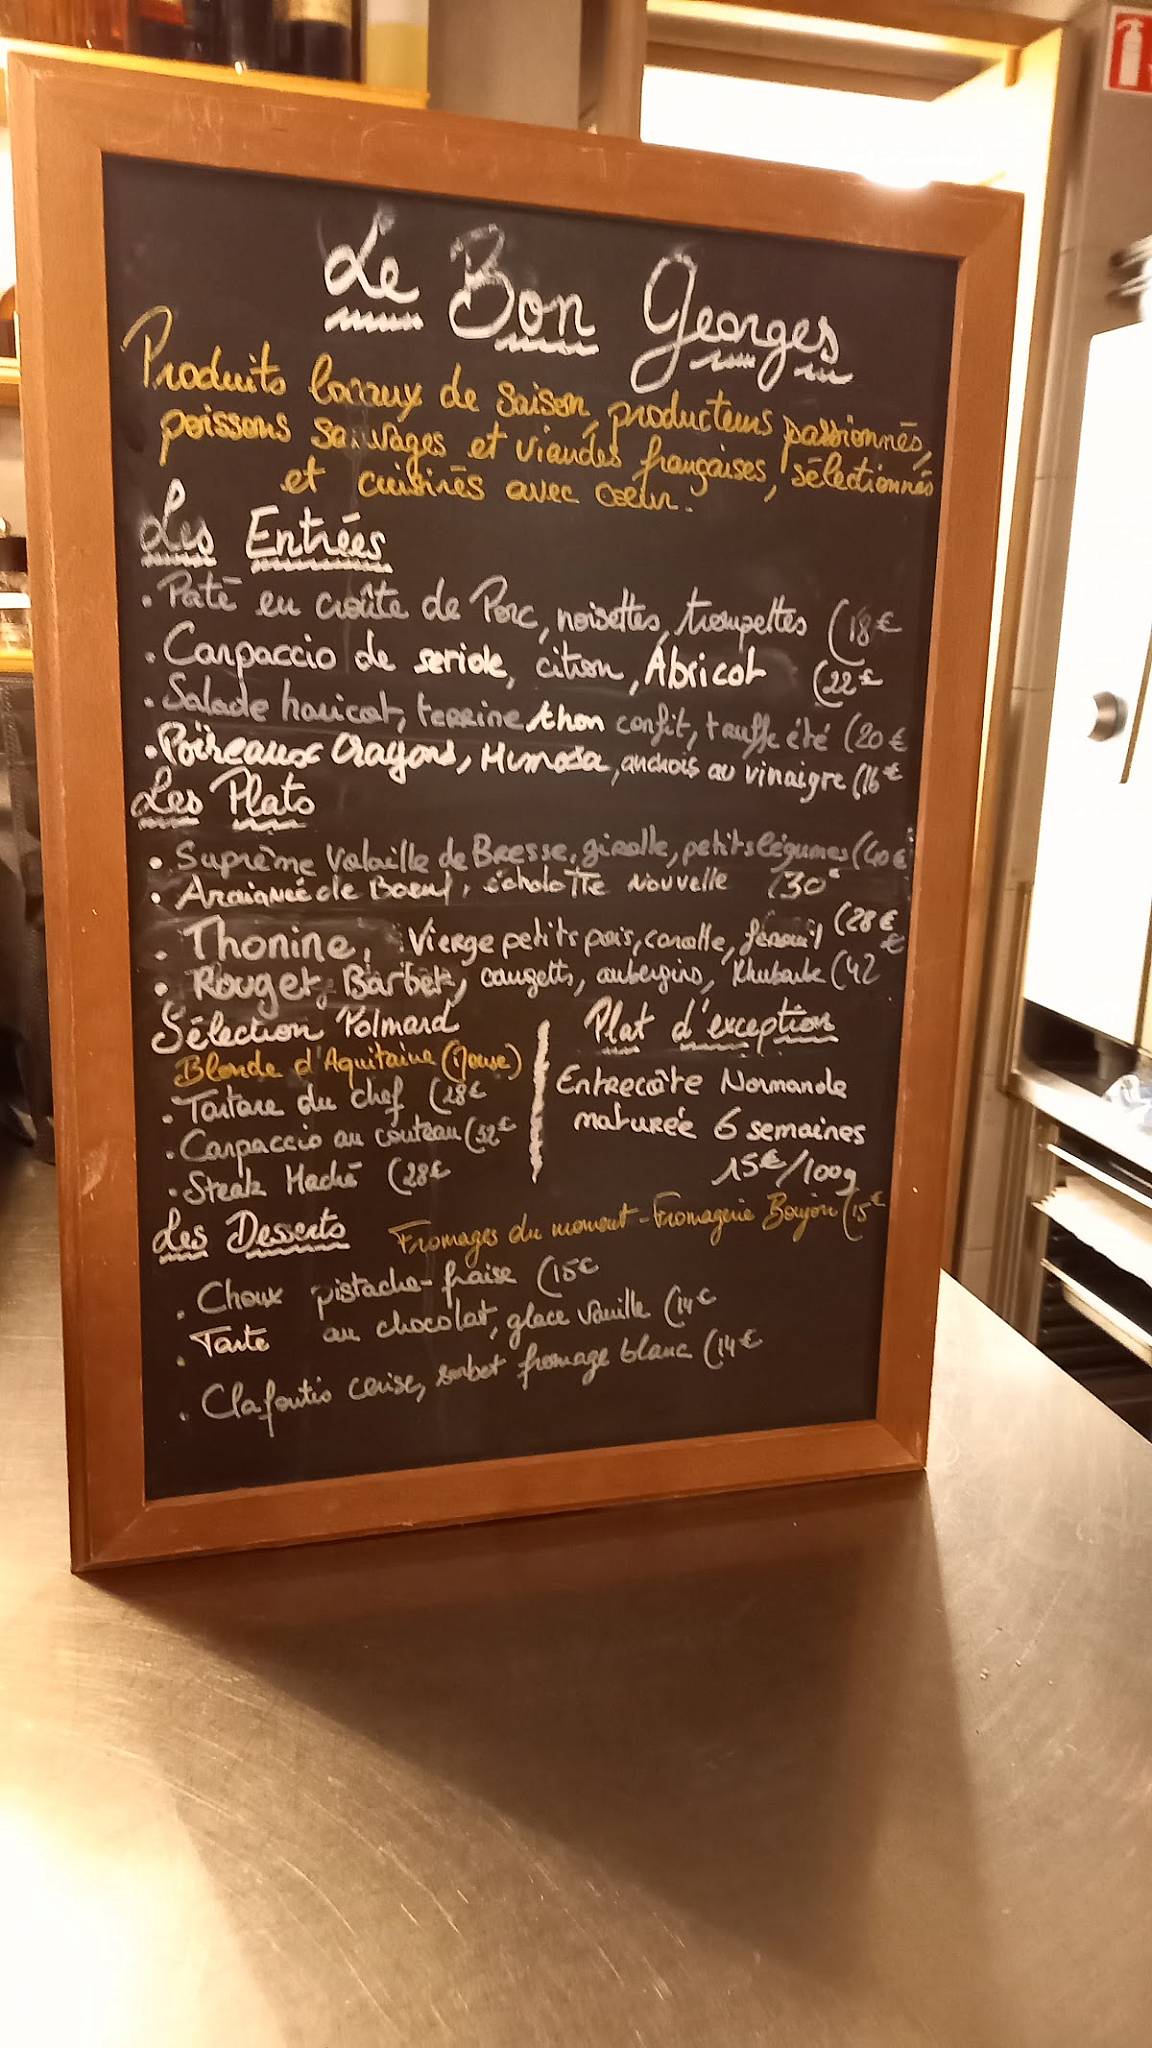 Le Bon Georges
Produits locaux de saison, producteurs passionnés,
poissons sauvages et viandes françaises, sélectionnés
et cuisinés avec cœur.
Les Entrées
. Paté en croûte de Porc, noisettes, trompettes (18€
. Carpaccio de seriole, citron, Abricot (22€
. Salade haricot, terrine thon confit, truffe été (20€
. Poireaux Crayons, Mimosa, anchois au vinaigre (16€
Les Plats
. Suprême Volaille de Bresse, girolle, petits légumes (40€
. Araignée de Boeuf, écholotte Nouvelle (30€
. Thonine, Vierge petits pois, carotte, fenouil (28€
. Rouget, Barbet, courgetts, aubergins, Rhubarbe (42€
Sélection Polmard
Blonde d'Aquitaine (Meuse)
. Tartare du chef (28€
. Carpaccio au couteau (32€
. Steak Haché (28€
Plat d'exception
Entrecôte Normande
maturée 6 semaines
15€/100g
Les Desserts
Fromages du moment - Fromagerie Boujon (15€
. Choux pistache-fraise (15€
. Tarte au chocolat, glace Vanille (14€
. Clafoutis cerise, sorbet fromage blanc (14€